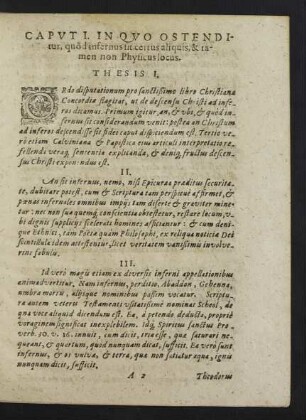 CAPVT I. IN QVO OSTENDI-
tur, quòd infernus sit certus aliquis, & ta-
men non Physicus locus.
THESIS I.
ORdo disputationum pro sanctissimo libro Christianæ
Concordiæ flagitat, ut de descensu Christi ad infe-
ros dicamus. Primum igitur an, & ubi, & quid in-
fernus sit considerandum venit: postea an Christum
ad inferos descendisse sit fidei caput dispiciendum est. Tertio ve-
rò etiam Calviniana & Papistica eius articuli interpretatio re-
fellenda: verag, sententia explicanda, & deniq, fructus descen-
sus Christi exponendus est.
II.
An sit infernus, nemo, nisi Epicurea præditus securita-
te, dubitare potest, cum & Scriptura tam perspicuè affirmet, &
pœnas infernales omnibus impijs tam disertè & graviter mine-
tur: nec non sua quemq, conscientia obtestetur, restare locum, u-
bi dignis supplicijs scelerati homines afficiantur: & cum deni-
que Ethnici, tam Poëtæ quam Philosophi, ex reliqua notitiæ Dei
scintillula idem attestentur, licet veritatem vanissimis involve-
rint fabulis.
III.
Id verò magis etiam ex diversis inferni appellationibus
animadvertitur, Nam infernus, perditio, Abaddon, Gehenna,
umbra mortis, alijsque nominibus passim vocatur. Scriptu-
ra autem veteris Testamenti usitatissimè nominat Scheol, de
qua voce aliquid dicendum est. Ea, à petendo deducta, propriè
voraginem significat inexplebilem. Idq, Spiritus sanctus Pro-
verb. 30. v. 16. innuit, cum dicit, tria esse, quæ saturari ne-
queant, & quartum, quod nunquam dicat, sufficit. Ea verò sunt
infernus, & os vulvæ, & terra, quæ non satiatur aqua, ignis
nunquam dicit, sufficit.
A 2 Theodorus